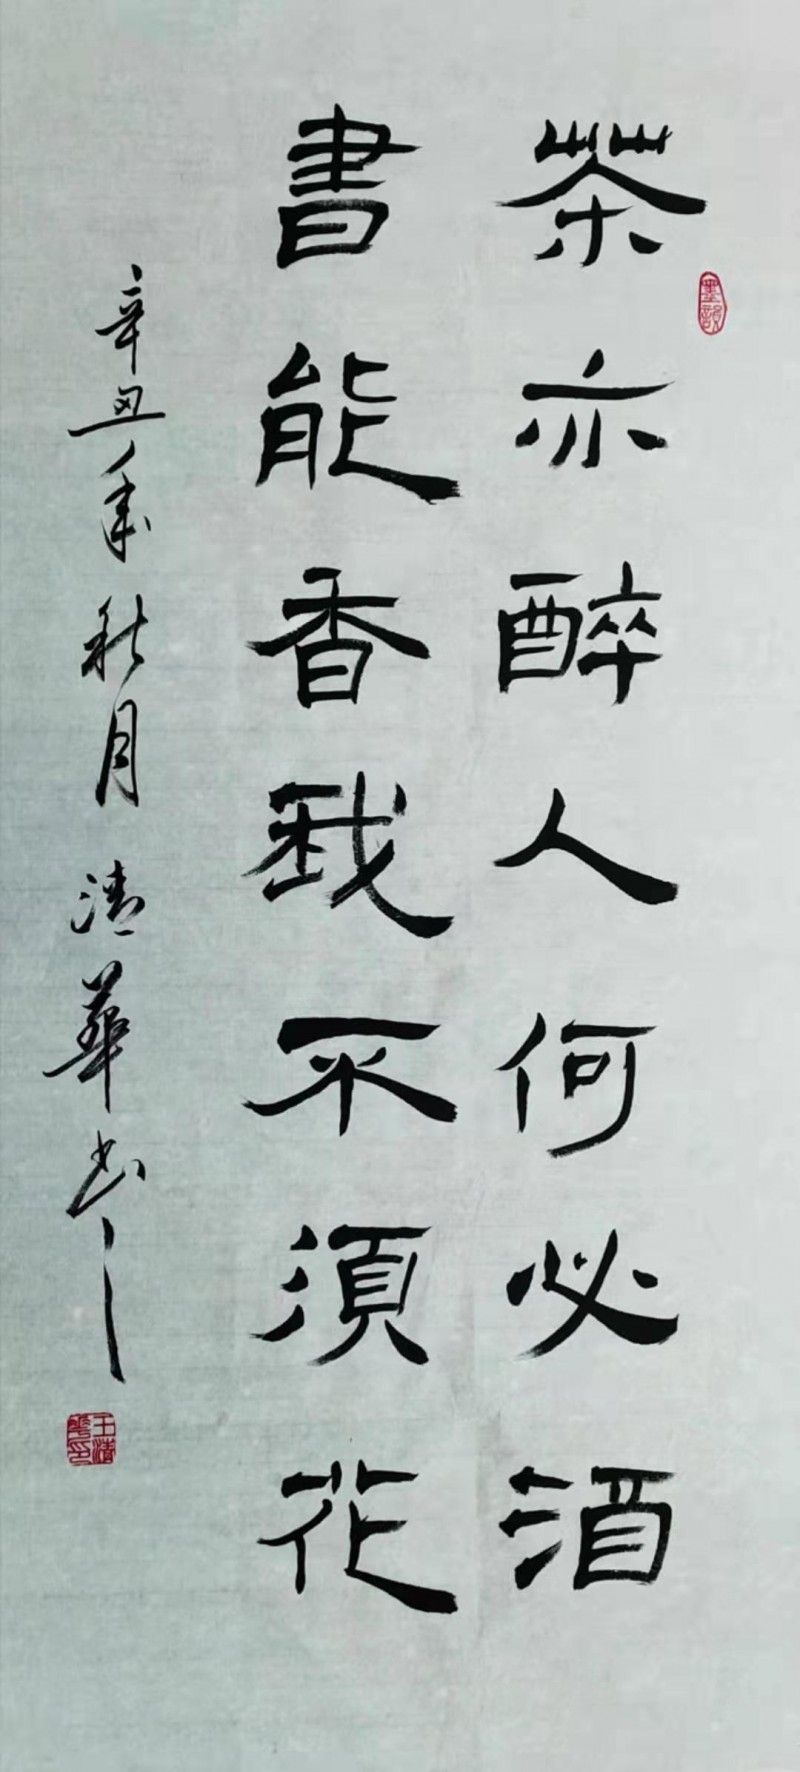 茶亦醉人何必酒
書能香我不須花
辛丑年秋月清華書
墨韻
王清華印